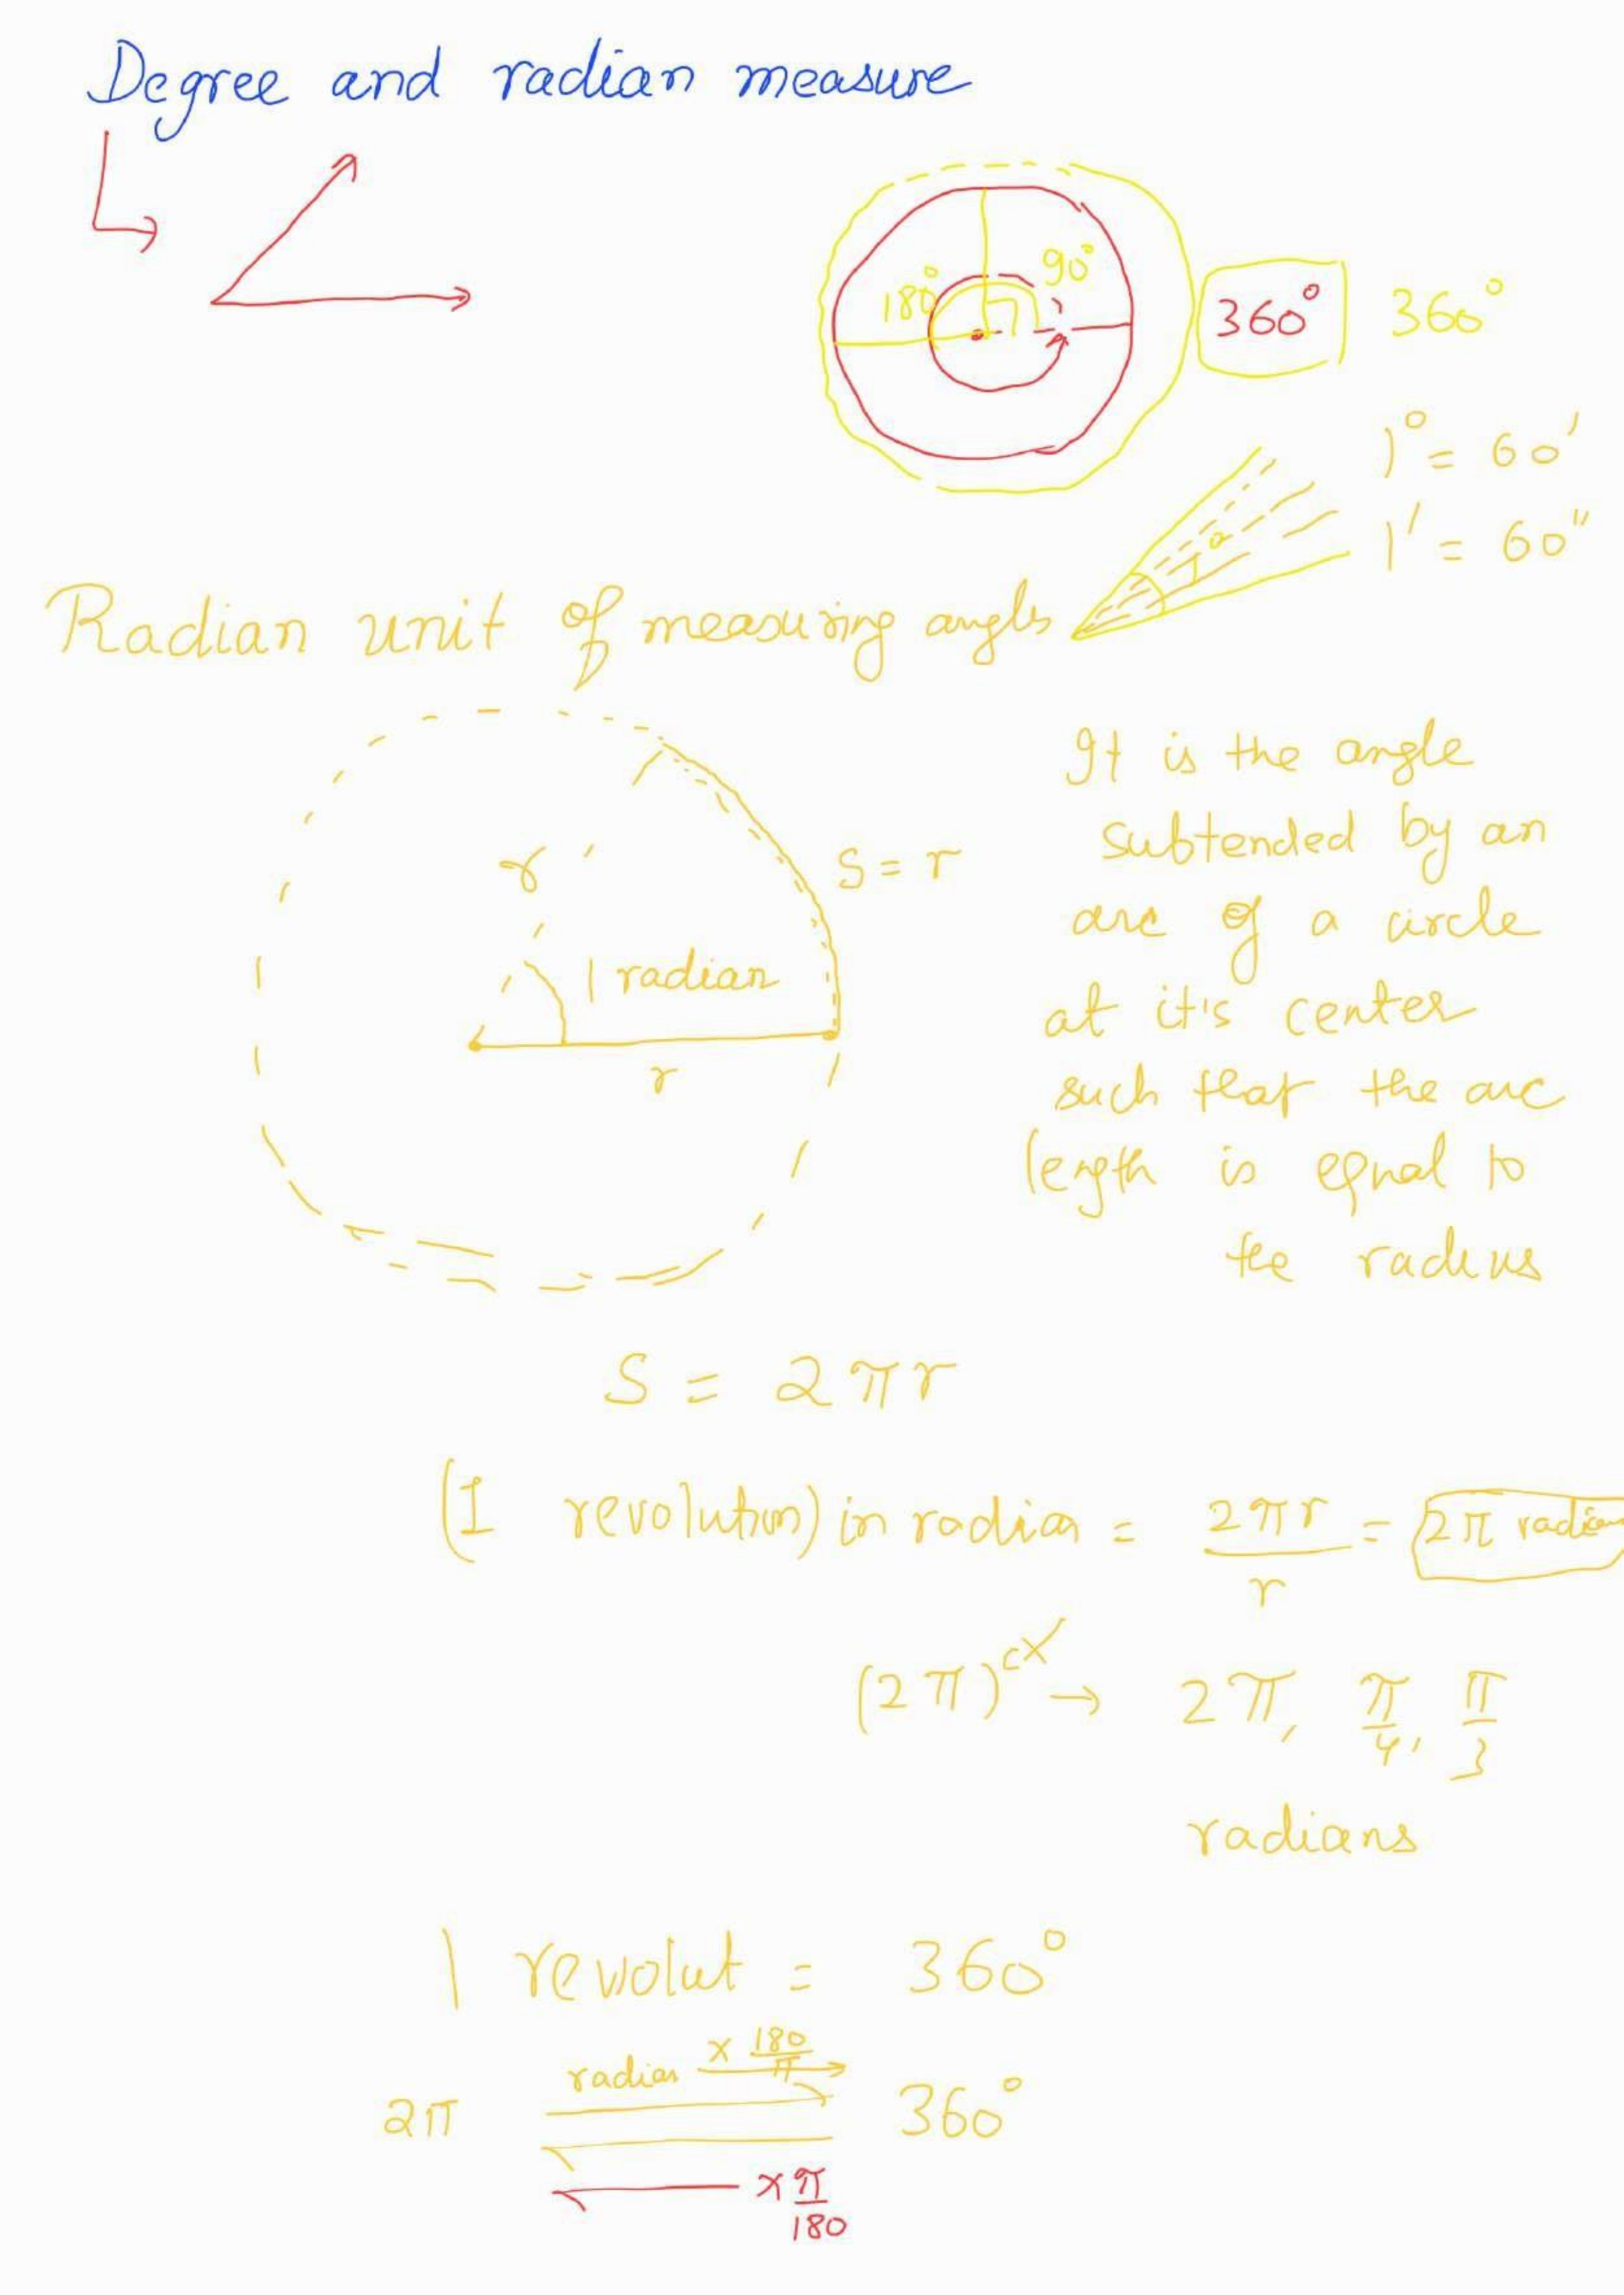 Degree and radian measure
180° 90° 360° 360°
1° = 60'
1' = 60"
1°
Radian unit of measuring angles
It is the angle
subtended by an
arc of a circle
at it's center
such that the arc
length is equal to
the radius
r S = r
1 radian
r
S = 2πr
(1 revolution) in radian = 2πr/r = 2π radian
(2π)ᶜ → 2π, π/4, π/3
radians
1 revolut = 360°
radian × 180/π
2π 360°
× π/180